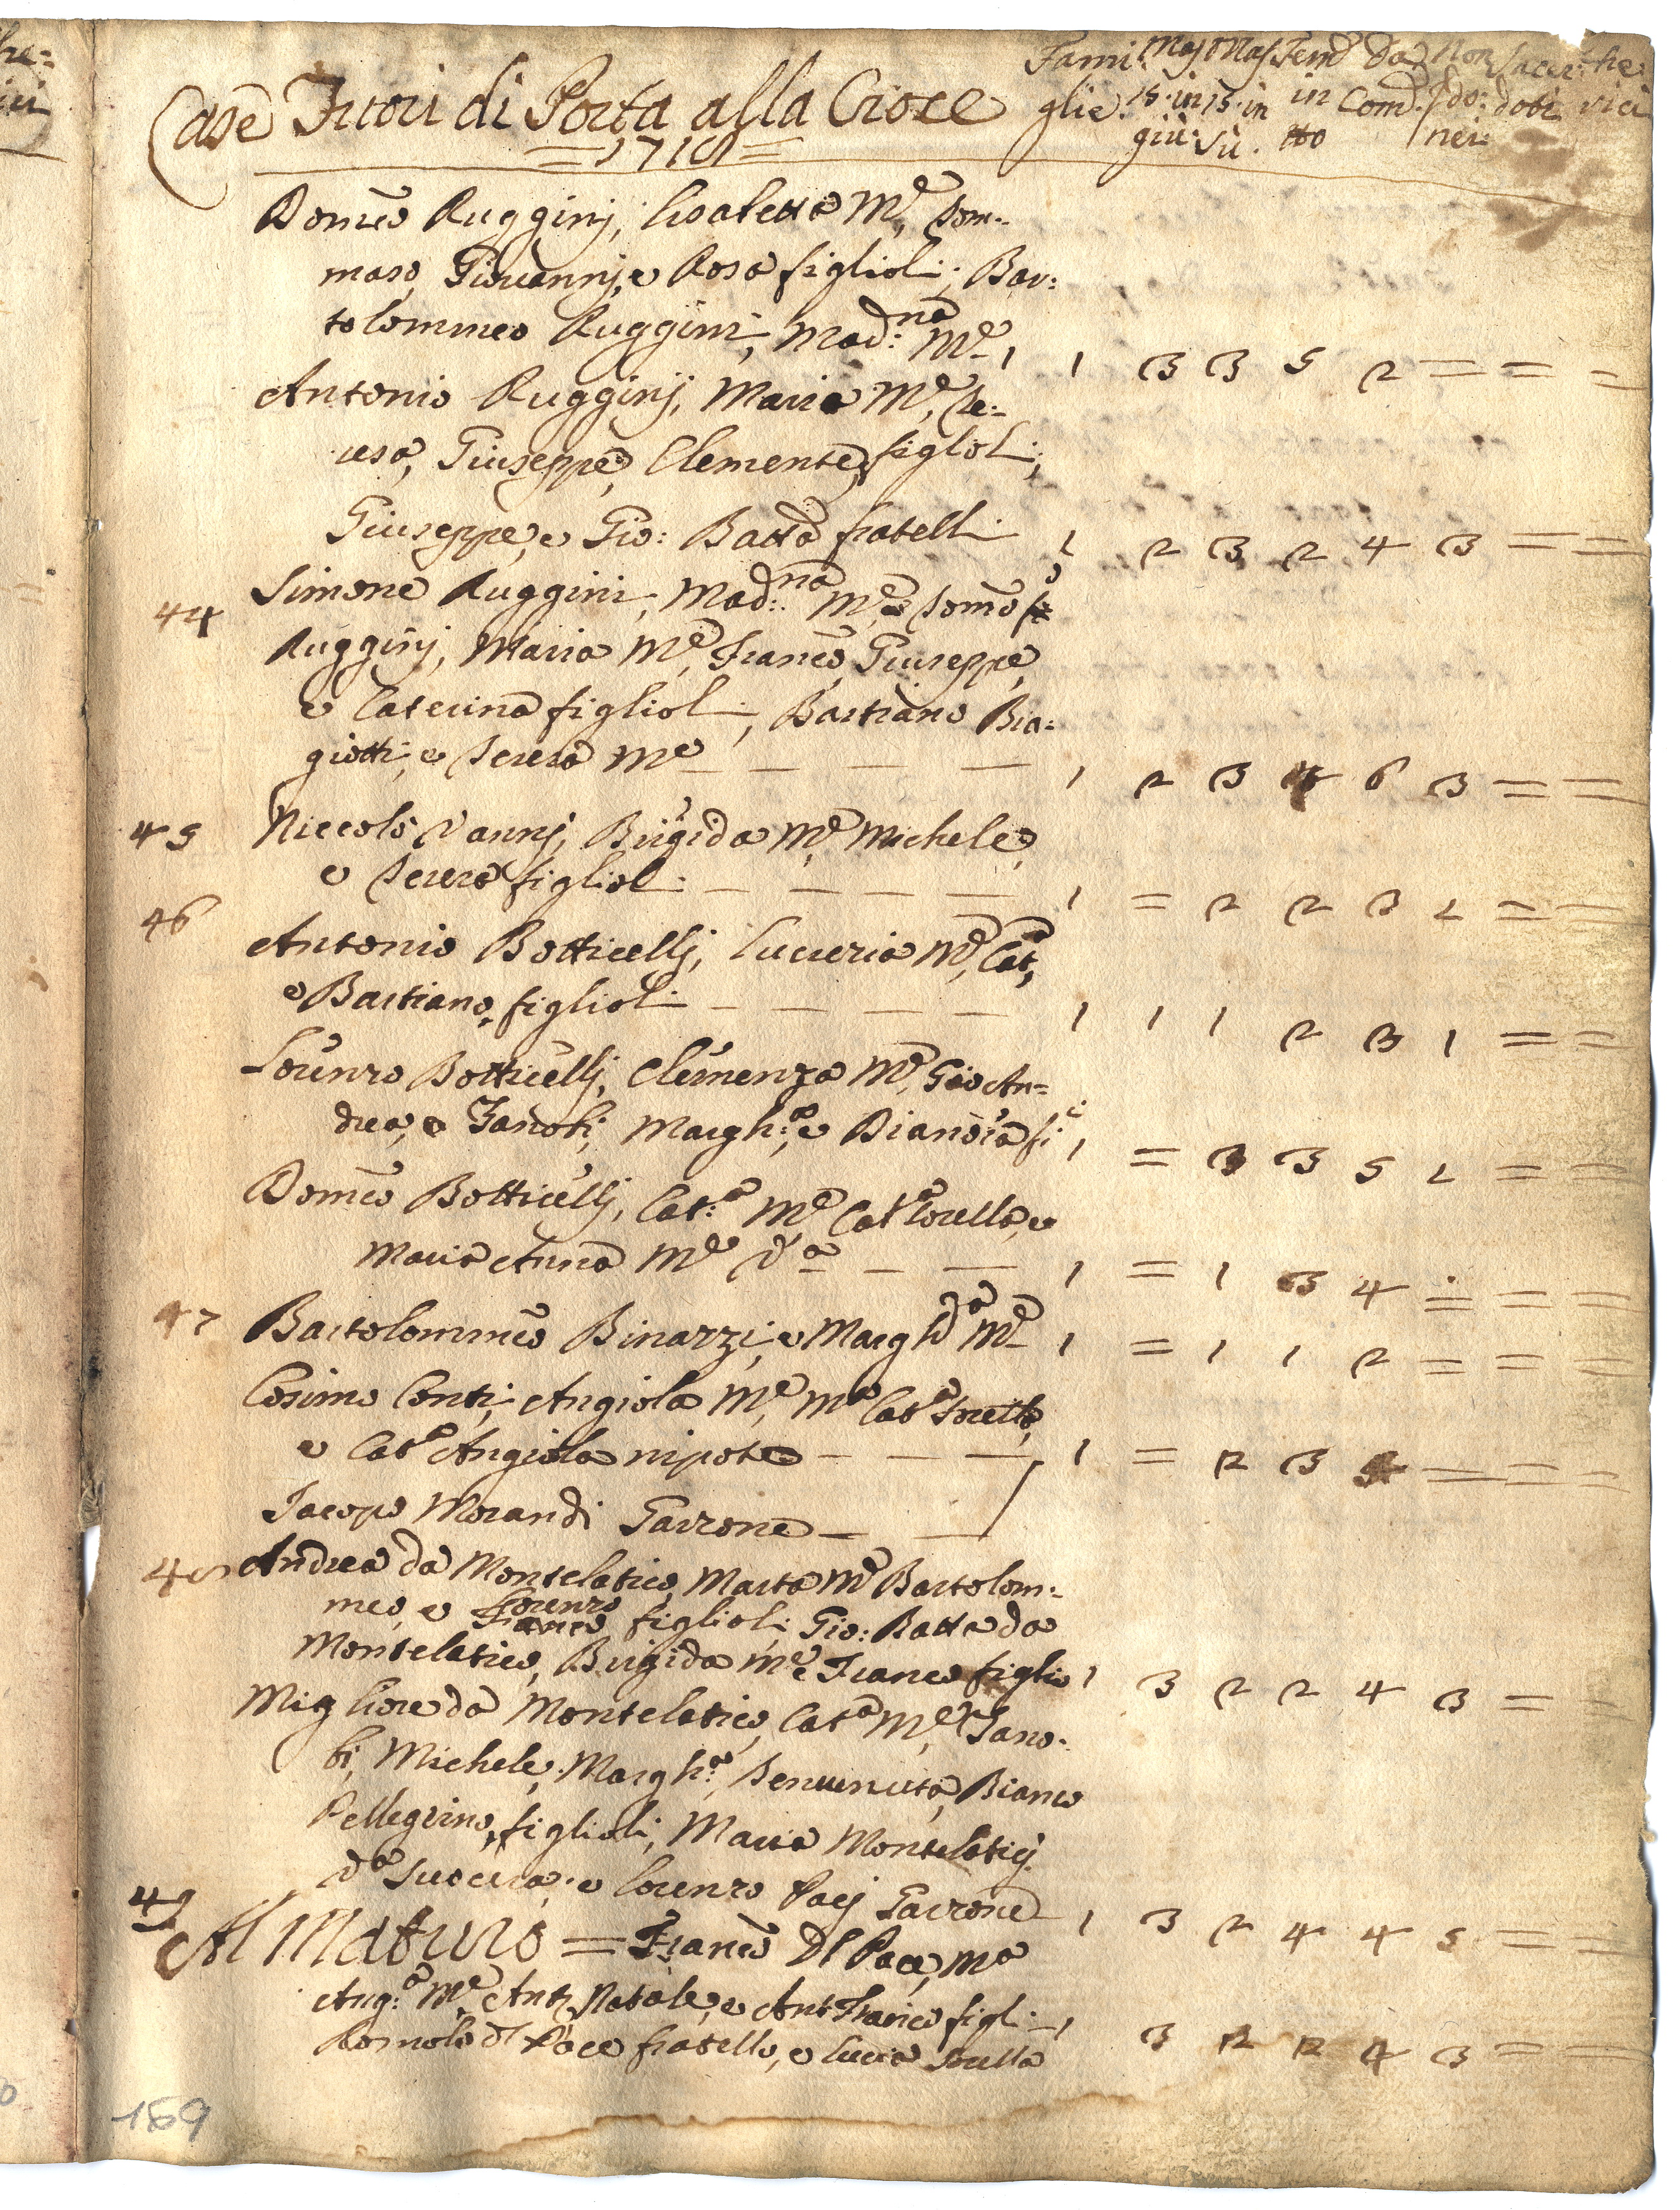 Case Fuori di Porta alla Croce
=1718=
Fami: Mas. Mas. Fem. Da Non Sacer: Che:
glie. 15. in 15. in in Com: do: doti rici
giù: sù. tto nei:
Domco Rugginj, Lisabetta Me, Tom:
maso, Giovannj, e Rosa figlioli; Bar:
tolommeo Ruggini, Mad:na Me 1 1 3 3 5 2 = = =
Antonio Rugginj, Maria Me, Te:
resa, Giuseppe, Clemente figlioli,
Giuseppe, e Gio: Batta fratelli 1 2 3 2 4 3 = =
44 Simone Ruggini, Mad:na Me, e Tomo
Rugginj, Maria Me, Franco, Giuseppe,
e Caterina figlioli, Bastiano Bia:
giotti, e Teresa Me 1 2 3 4 6 3 = =
45 Niccolò Vannj, Brigida Me, Michele,
e Teresa figlioli 1 = 2 2 3 2 = =
46 Antonio Botticellj, Lucrezia Me, Cata,
e Bastiano figlioli 1 1 1 2 3 1 = =
Lorenzo Botticellj, Clemenza Me, Gio An=
drea, e Zanobi, Margh:a, e Dianora fi 1 = 3 3 5 2 = =
Domco Botticellj, Cat:a Me, Cata sorella, e
Maria Anna Me Va 1 = 1 3 4 = = =
47 Bartolommeo Binazzi, e Margh:a Me 1 = 1 1 2 = = =
Cosimo Conti, Angiola Me, Ma Cata sorella,
e Cata Angiola nipote 1 = 2 3 5 = = =
Jacopo Morandi Garzone
48 Andrea da Montelatico, Marta Me Bartolom:
meo, e Lorenzo figlioli, Gio: Batta da
Franco
Montelatico, Brigida Me e Franco figlio 1 3 2 2 4 3 = =
Migliore da Montelatico, Cata Me, Zano:
bi, Michele, Margh:a, Benvenuta, Bianco
Pellegrino, figlioli, Maria Montelaticj
Va Suocera, e Lorenzo Pacj Garzone 1 3 2 4 4 5 = =
49 Al Maturo = Franco Dl Pace, Ma
Ang:a Me, Anto Natale, e Ant Franco figli 1 3 2 2 4 3 = =
Romolo dl Pace fratello, e Lucia sorella
169